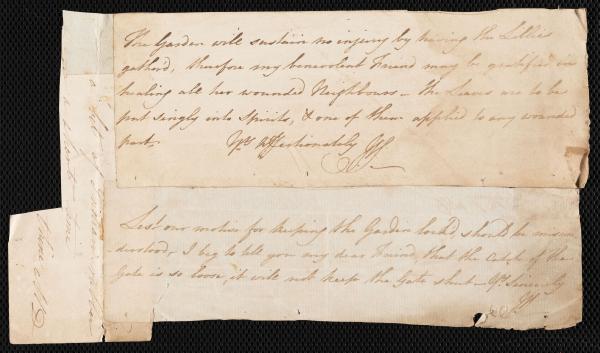 The Garden will sustain no injury by having the Lillies
gether'd, therefore my benevolent Friend may be gratified in
healing all her wounded Neighbours — the Leaves are to be
put singly into Spirits, & one of them applied to any wounded
part. Yrs Affectionately
Lest our motive for keeping the Garden lock'd, should be misun
derstood, I beg to tell you my dear Friend, that the Catch of the
Gate is so loose, it will not keep the Gate shut — Yrs Sincerely
a short time
Thine